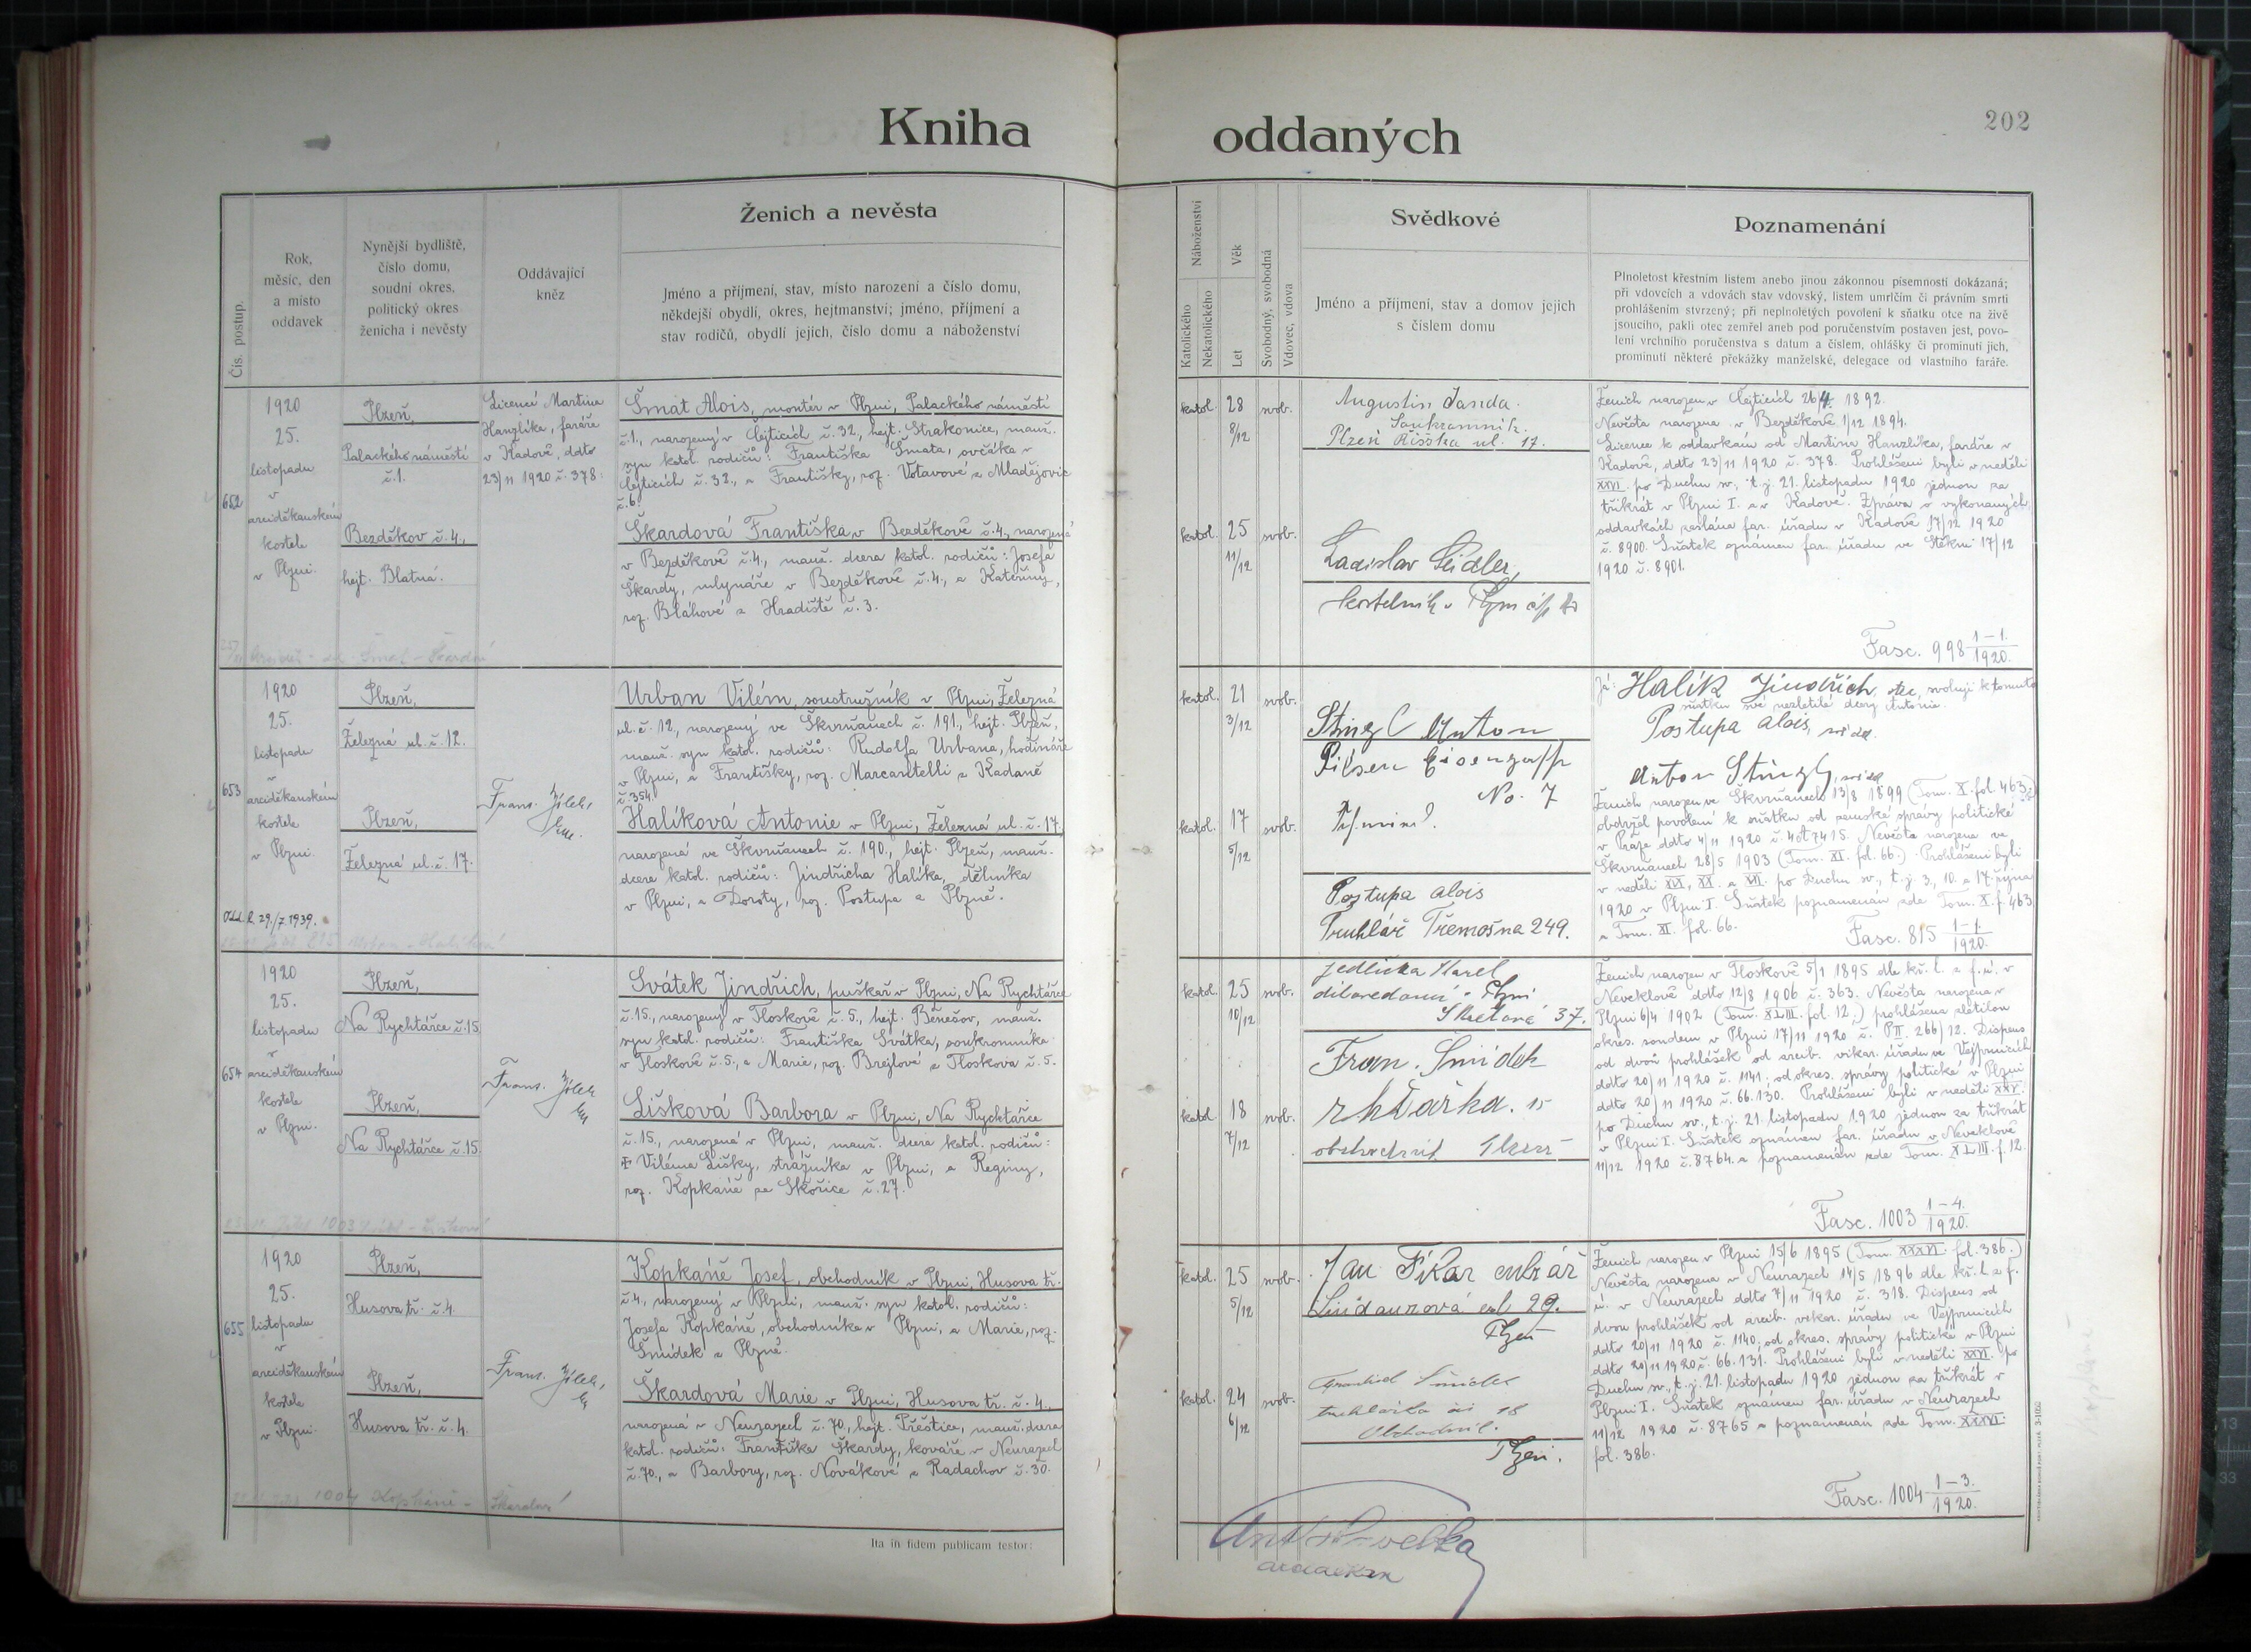 Kniha
oddaných
202
Čís. postup.
Rok,
měsíc, den
a místo
oddavek
Nynější bydliště,
číslo domu,
soudní okres,
politický okres
ženicha i nevěsty
Oddávající
kněz
Ženich a nevěsta
Jméno a příjmení, stav, místo narození a číslo domu,
někdejší obydlí, okres, hejtmanství; jméno, příjmení a
stav rodičů, obydlí jejich, číslo domu a náboženství
Náboženství
Katolického
Nekatolického
Věk
Let
Svobodný, svobodná
Vdovec, vdova
Svědkové
Jméno a příjmení, stav a domov jejich
s číslem domu
Poznamenání
Plnoletost křestním listem anebo jinou zákonnou písemností dokázaná;
při vdovcích a vdovách stav vdovský, listem umrlčím či právním smrti
prohlášením stvrzený; při neplnoletých povolení k sňatku otce na živě
jsoucího, pakli otec zemřel aneb pod poručenstvím postaven jest, povo-
lení vrchního poručenstva s datum a číslem, ohlášky či prominutí jich,
prominutí některé překážky manželské, delegace od vlastního faráře.
652
1920
25.
listopadu
v
arciděkanském
kostele
v Plzni.
Plzeň,
Palackého náměstí
č.1.
Bezděkov č.4.,
hejt. Blatná.
Licencí Martina
Hanzlíka, faráře
v Kadově, ddto
23/11 1920 č. 378.
Šmat Alois, montér v Plzni, Palackého náměstí
č.1., narozený v Čejticích č. 32, hejt. Strakonice, manž.
syn katol. rodičů: Františka Šmata, ovčáka v
Čejticích č. 32., a Františky, roz. Votavové z Mladějovic
č.6.
Škardová Františka, v Bezděkově č.4., narozená
v Bezděkově č.4., manž. dcera katol. rodičů: Josefa
Škardy, mlynáře v Bezděkově č.4., a Kateřiny,
roz. Bláhové z Hradiště č. 3.
katol. 28 svob.
8/12
katol. 25 svob.
11/12
Augustin Janda.
Soukromník.
Plzeň Říšská ul. 17.
Ladislav Seidler,
kostelník v Plzni
Ženich narozen v Čejticích 26/4 1892.
Nevěsta narozena v Bezděkově 1/12 1894.
Licence k oddavkám od Martina Hanzlíka, faráře v
Kadově, ddto 23/11 1920 č. 378. Prohlášeni byli v neděli
XXVI. po Duchu sv., t.j. 21. listopadu 1920 jednou za
třikrát v Plzni I. a v Kadově. Zpráva o vykonaných
oddavkách zaslána far. úřadu v Kadově 17/12 1920
č. 8900. Sňatek oznámen far. úřadu ve Štěkni 17/12
1920 č. 8901.
Fasc. 998 1-1./1920.
653
1920
25.
listopadu
v
arciděkanském
kostele
v Plzni.
Plzeň,
Železná ul. č. 12.
Plzeň,
Železná ul. č. 17.
Odd. 29./7. 1939.
Frant. Jílek,
Urban Vilém, soustružník v Plzni, Železná
ul. č. 12, narozený ve Škvrňanech č. 191., hejt. Plzeň,
manž. syn katol. rodičů: Rudolfa Urbana, hodináře
v Plzni, a Františky, roz. Marcantelli z Kadaně
č. 354.
Halíková Antonie v Plzni, Železná ul. č. 17,
narozená ve Škvrňanech č. 190., hejt. Plzeň, manž.
dcera katol. rodičů: Jindřicha Halíka, dělníka
v Plzni, a Doroty, roz. Postupa z Plzně.
katol. 21 svob.
3/12
katol. 17 svob.
5/12
Stingl Anton
Pilsen
No. 7
Postupa Alois
Truhlář Třemošna 249.
Já: Halík Jindřich, otec, svoluji k tomuto
sňatku své nezletilé dcery Antonie.
Postupa Alois, svědek.
Anton Stingl, svědek
Ženich narozen ve Škvrňanech 13/8 1899 (Tom. X. fol. 463.)
obdržel povolení k sňatku od zemské správy politické
v Praze ddto 4/11 1920 Nevěsta narozena ve
Škvrňanech 28/5 1903 (Tom. XI. fol. 66.) Prohlášeni byli
v neděli XIX, XX. a XXI. po Duchu sv., t.j. 3., 10. a 17. října
1920 v Plzni I. Sňatek poznamenán zde Tom. X. f. 463
a Tom. XI. fol. 66.
Fasc. 815 1-1./1920.
654
1920
25.
listopadu
v
arciděkanském
kostele
v Plzni.
Plzeň,
Na Rychtářce č.15
Plzeň,
Na Rychtářce č.15.
Frant. Jílek
Svátek Jindřich, puškař v Plzni, Na Rychtářce
č. 15., narozený v Tloskově č. 5., hejt. Benešov, manž.
syn katol. rodičů: Františka Svátka, soukromníka
v Tloskově č. 5., a Marie, roz. Brejlové z Tloskova č. 5.
Lišková Barbora v Plzni, Na Rychtářce
č. 15., narozená v Plzni, manž. dcera katol. rodičů:
Viléma Lišky, strážníka v Plzni, a Reginy,
roz. Kopkáně ze Skořice č. 27.
katol. 25 svob.
10/12
katol. 18 svob.
7/12
Jedlička Karel
dílovedoucí v Plzni
37.
Fran. Šmídek
15
obchodník Plzeň
Ženich narozen v Tloskově 5/1 1895 dle kř. l. z f. ú. v
Neveklově ddto 12/8 1906 č. 363. Nevěsta narozena v
Plzni 6/4 1902 (Tom. XLIII. fol. 12.) prohlášena zletilou
okres. soudem v Plzni 17/11 1920 č. PII. 266/12. Dispens
od dvou prohlášek od arcib. vikar. úřadu ve Vejprnicích
ddto 20/11 1920 č. 1141., od okres. správy politické v Plzni
ddto 20/11 1920 č. 66.130. Prohlášeni byli v neděli XXVI.
po Duchu sv., t.j. 21. listopadu 1920 jednou za třikrát
v Plzni I. Sňatek oznámen far. úřadu v Neveklově
11/12 1920 č. 8764. a poznamenán zde Tom. XLIII. f. 12.
Fasc. 1003 1-4./1920.
655
1920
25.
listopadu
v
arciděkanském
kostele
v Plzni.
Plzeň,
Husova tř. č. 4.
Plzeň,
Husova tř. č. 4.
Frant. Jílek,
Kopkáně Josef, obchodník v Plzni, Husova tř.
č. 4., narozený v Plzni, manž. syn katol. rodičů:
Josefa Kopkáně, obchodníka v Plzni, a Marie, roz.
Šmídek z Plzně.
Škardová Marie v Plzni, Husova tř. č. 4.,
narozená v Neurazech č. 70, hejt. Přeštice, manž. dcera
katol. rodičů: Františka Škardy, kováře v Neurazech
č. 70., a Barbory, roz. Novákové z Radachov č. 30.
katol. 25 svob.
5/12
katol. 24 svob.
6/12
Jan Fikar cukrář
Lindaurová ul 29.
Plzeň
František Šmídek
Obchodník.
Plzeň.
Ženich narozen v Plzni 15/6 1895 (Tom. XXXVI. fol. 386.)
Nevěsta narozena v Neurazech 14/5 1896 dle kř. l. z f.
ú. v Neurazech ddto 7/11 1920 č. 318. Dispens od
dvou prohlášek od arcib. vikar. úřadu ve Vejprnicích
ddto 20/11 1920 č. 1140., od okres. správy politické v Plzni
ddto 20/11 1920 č. 66.131. Prohlášeni byli v neděli XXVI. po
Duchu sv., t.j. 21. listopadu 1920 jednou za třikrát v
Plzni I. Sňatek oznámen far. úřadu v Neurazech
11/12 1920 č. 8765 a poznamenán zde Tom. XXXVI.
fol. 386.
Fasc. 1004 1-3./1920.
Ita in fidem publicam testor: